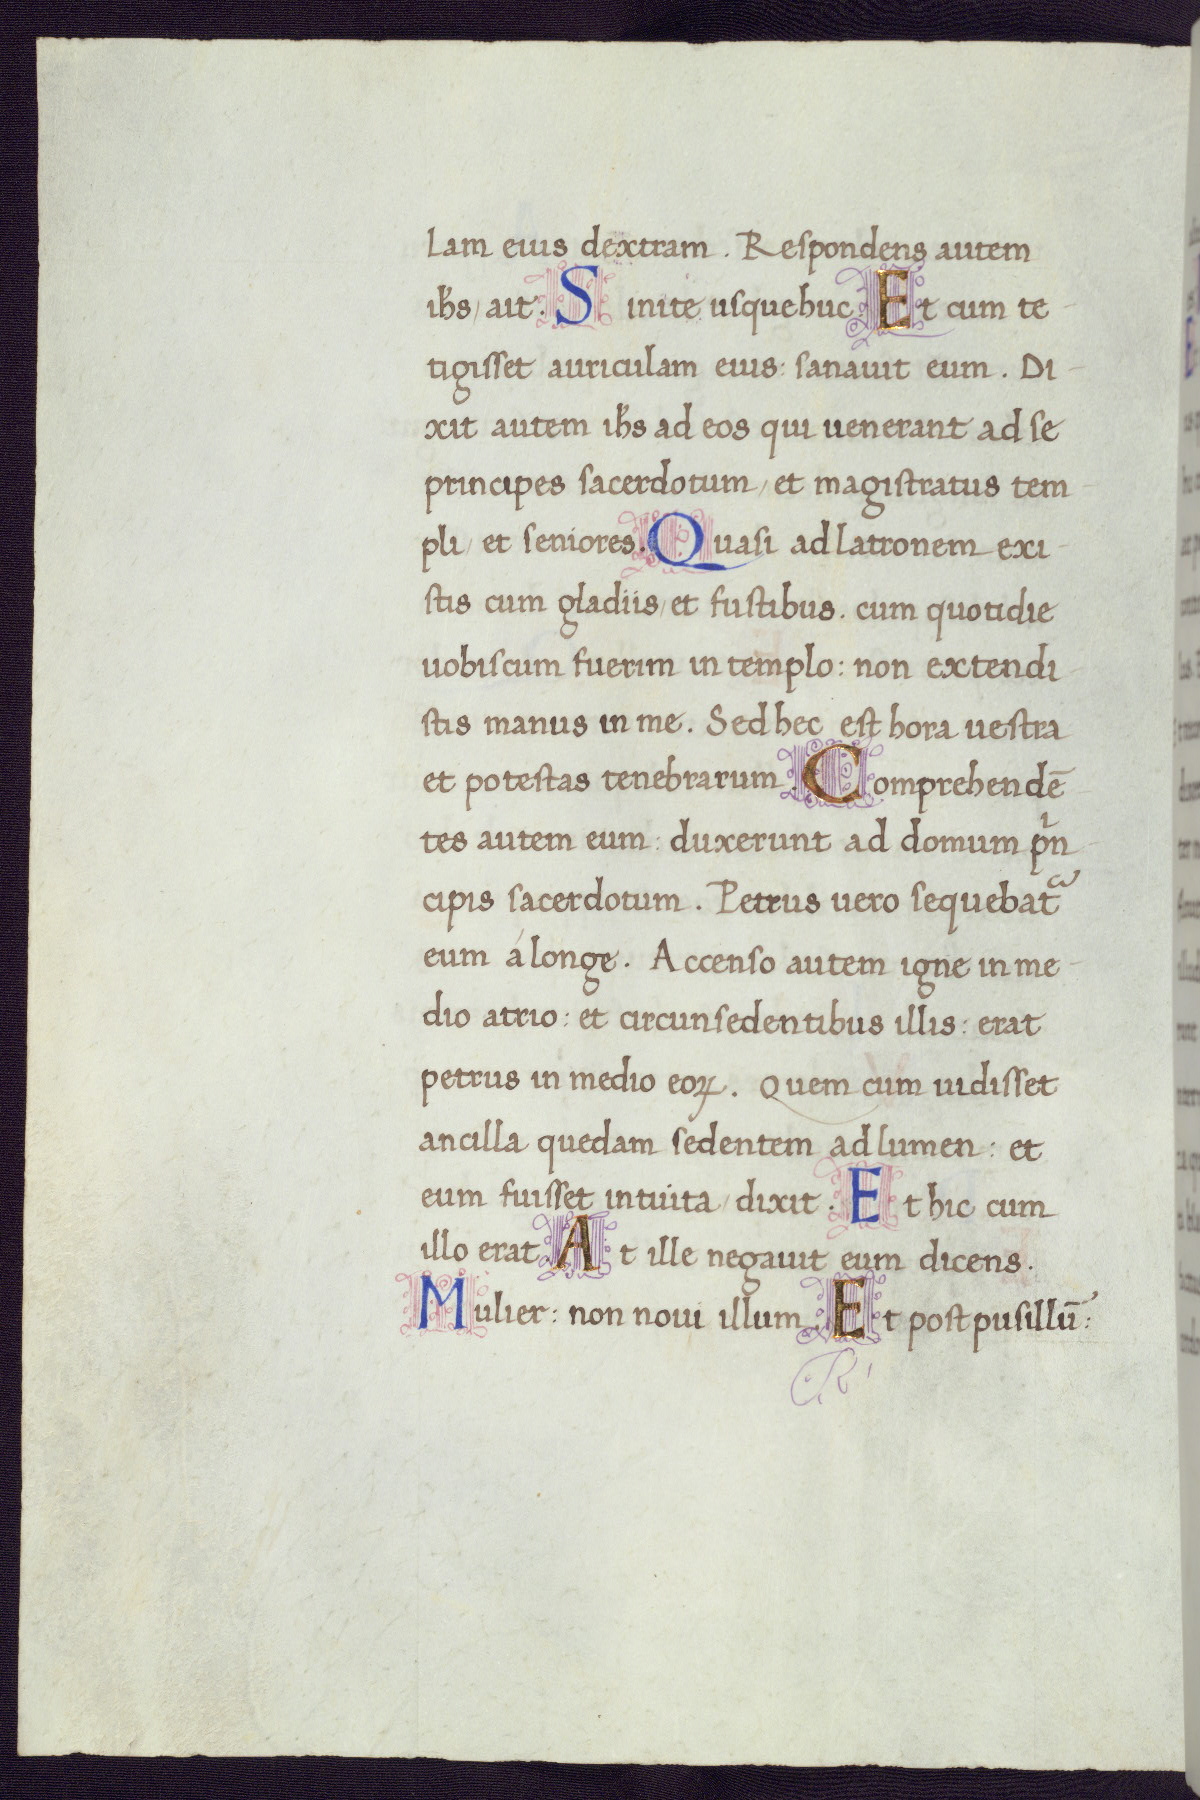 lam eius dextram. Respondens autem
ihs/ ait. Sinite usquehuc. Et cum te-
tigisset auriculam eius: sanauit eum. Di-
xit autem ihs ad eos qui uenerant ad se
principes sacerdotum/ et magistratus tem-
pli/ et seniores. Quasi ad latronem exi-
stis cum gladiis/ et fustibus. cum quotidie
uobiscum fuerim in templo: non extendi-
stis manus in me. Sed hec est hora uestra
et potestas tenebrarum. Comprehendē
tes autem eum: duxerunt ad domum pͥn-
cipis sacerdotum. Petrus uero sequebat᷑
eum á longe. Accenso autem igne in me-
dio atrio: et circunsedentibus illis: erat
petrus in medio eoꝝ. Quem cum uidisset
ancilla quedam sedentem ad lumen: et
eum fuisset intuita/ dixit. Et hic cum
illo erat. At ille negauit eum dicens.
Mulier: non noui illum. Et post pusillū: